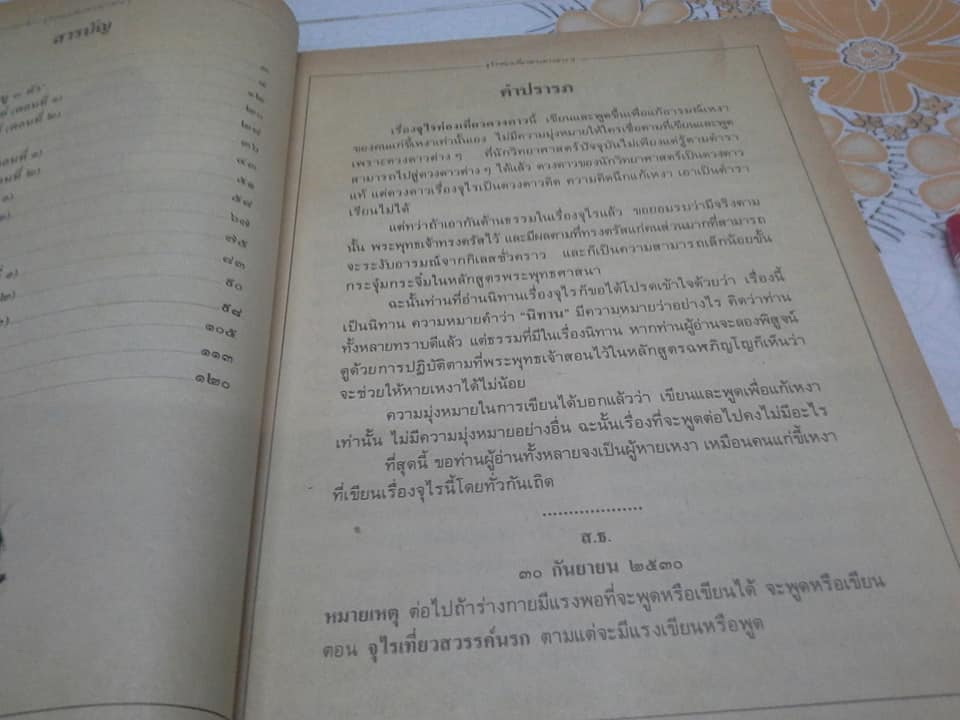 สารบัญ
๑
๘
๑๒
๒๐
๒๘
๓๖
๔๓
๕๑
๕๗
๖๗
๗๕
๘๓
๙๐
๙๘
๑๐๕
๑๑๓
๑๒๐
คำปรารภ
เรื่องจุไรท่องเที่ยวดวงดาวนี้ เขียนและพูดขึ้นเพื่อแก้อารมณ์เหงา
ของคนแก่ขี้เหงาเท่านั้นเอง ไม่มีความมุ่งหมายให้ใครเชื่อตามที่เขียนและพูด
เพราะดวงดาวต่าง ๆ ที่นักวิทยาศาสตร์ปัจจุบันไม่เพียงแต่รู้ตามตำรา
สามารถไปสู่ดวงดาวต่าง ๆ ได้แล้ว ดวงดาวของนักวิทยาศาสตร์เป็นดวงดาว
แท้ แต่ดวงดาวเรื่องจุไรเป็นดวงดาวคิด ความคิดนึกแก้เหงา เอาเป็นตำรา
เรียนไม่ได้
แต่ทว่าถ้าเอากันด้านธรรมในเรื่องจุไรแล้ว ขอยอมรับว่ามีจริงตาม
นั้น พระพุทธเจ้าทรงตรัสไว้ และมีผลตามที่ทรงตรัสแก่คนส่วนมากที่สามารถ
จะระงับอารมณ์จากกิเลสชั่วคราว และก็เป็นความสามารถเล็กน้อยขั้น
กระจุ๋มกระจิ๋มในหลักสูตรพระพุทธศาสนา
ฉะนั้นท่านที่อ่านนิทานเรื่องจุไรก็ขอได้โปรดเข้าใจด้วยว่า เรื่องนี้
เป็นนิทาน ความหมายคำว่า “นิทาน” มีความหมายว่าอย่างไร คิดว่าท่าน
ทั้งหลายทราบดีแล้ว แต่ธรรมที่มีในเรื่องนิทาน หากท่านผู้อ่านจะลองพิสูจน์
ดูด้วยการปฏิบัติตามที่พระพุทธเจ้าสอนไว้ในหลักสูตรฉฬภิญโญก็เห็นว่า
จะช่วยให้หายเหงาได้ไม่น้อย
ความมุ่งหมายในการเขียนได้บอกแล้วว่า เขียนและพูดเพื่อแก้เหงา
เท่านั้น ไม่มีความมุ่งหมายอย่างอื่น ฉะนั้นเรื่องที่จะพูดต่อไปคงไม่มีอะไร
ที่สุดนี้ ขอท่านผู้อ่านทั้งหลายจงเป็นผู้หายเหงา เหมือนคนแก่ขี้เหงา
ที่เขียนเรื่องจุไรนี้โดยทั่วกันเถิด
...................
ส.ธ.
๓๐ กันยายน ๒๕๓๐
หมายเหตุ ต่อไปถ้าร่างกายมีแรงพอที่จะพูดหรือเขียนได้ จะพูดหรือเขียน
ตอน จุไรเที่ยวสวรรค์นรก ตามแต่จะมีแรงเขียนหรือพูด